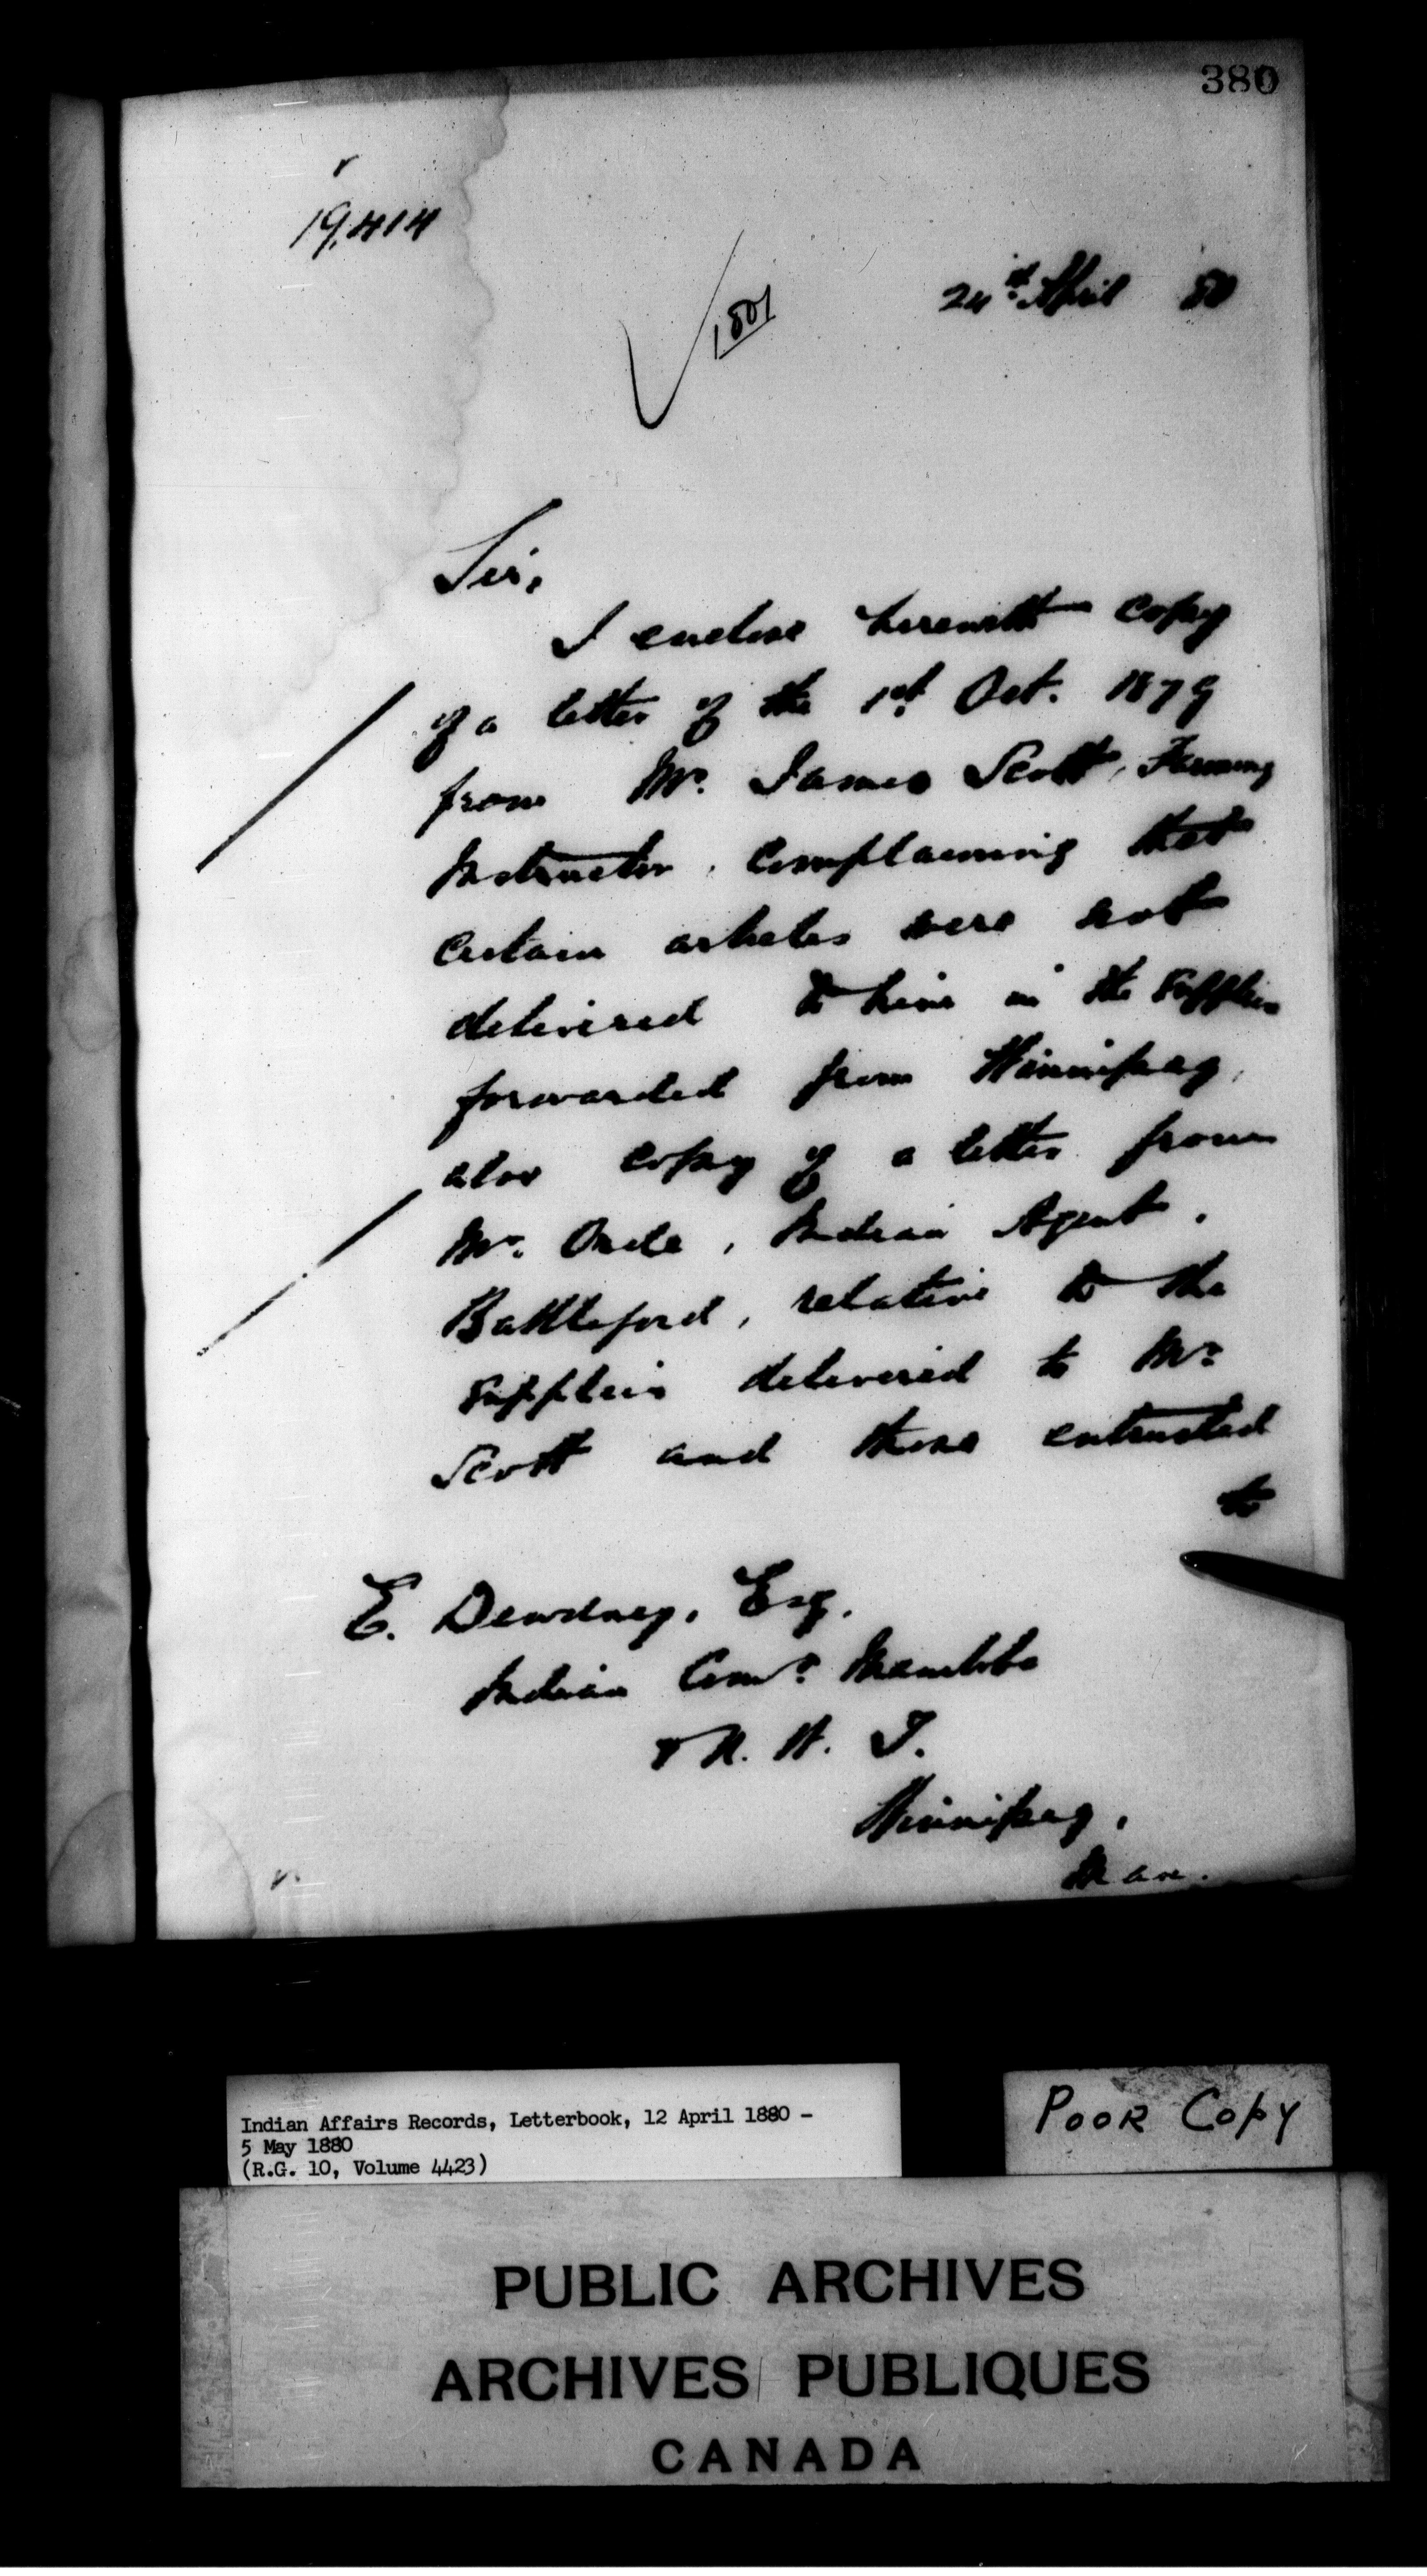 380
19,414
24th April 80
1801
Sir,
I enclose herewith copy
of a letter of the 1st Oct. 1879
from Mr. James Scott, Farming
Instructor, complaining that
certain articles were not
delivered to him in the supplies
forwarded from Winnipeg,
also copy of a letter from
Mr. Orde, Indian Agent,
Battleford, relative to the
supplies delivered to Mr.
Scott and those entrusted
to
E. Dewdney, Esq.
Indian Comr. Manitoba
& N. W. T.
Winnipeg,
Man.
Indian Affairs Records, Letterbook, 12 April 1880 -
5 May 1880
(R.G. 10, Volume 4423)
POOR COPY
PUBLIC ARCHIVES
ARCHIVES PUBLIQUES
CANADA